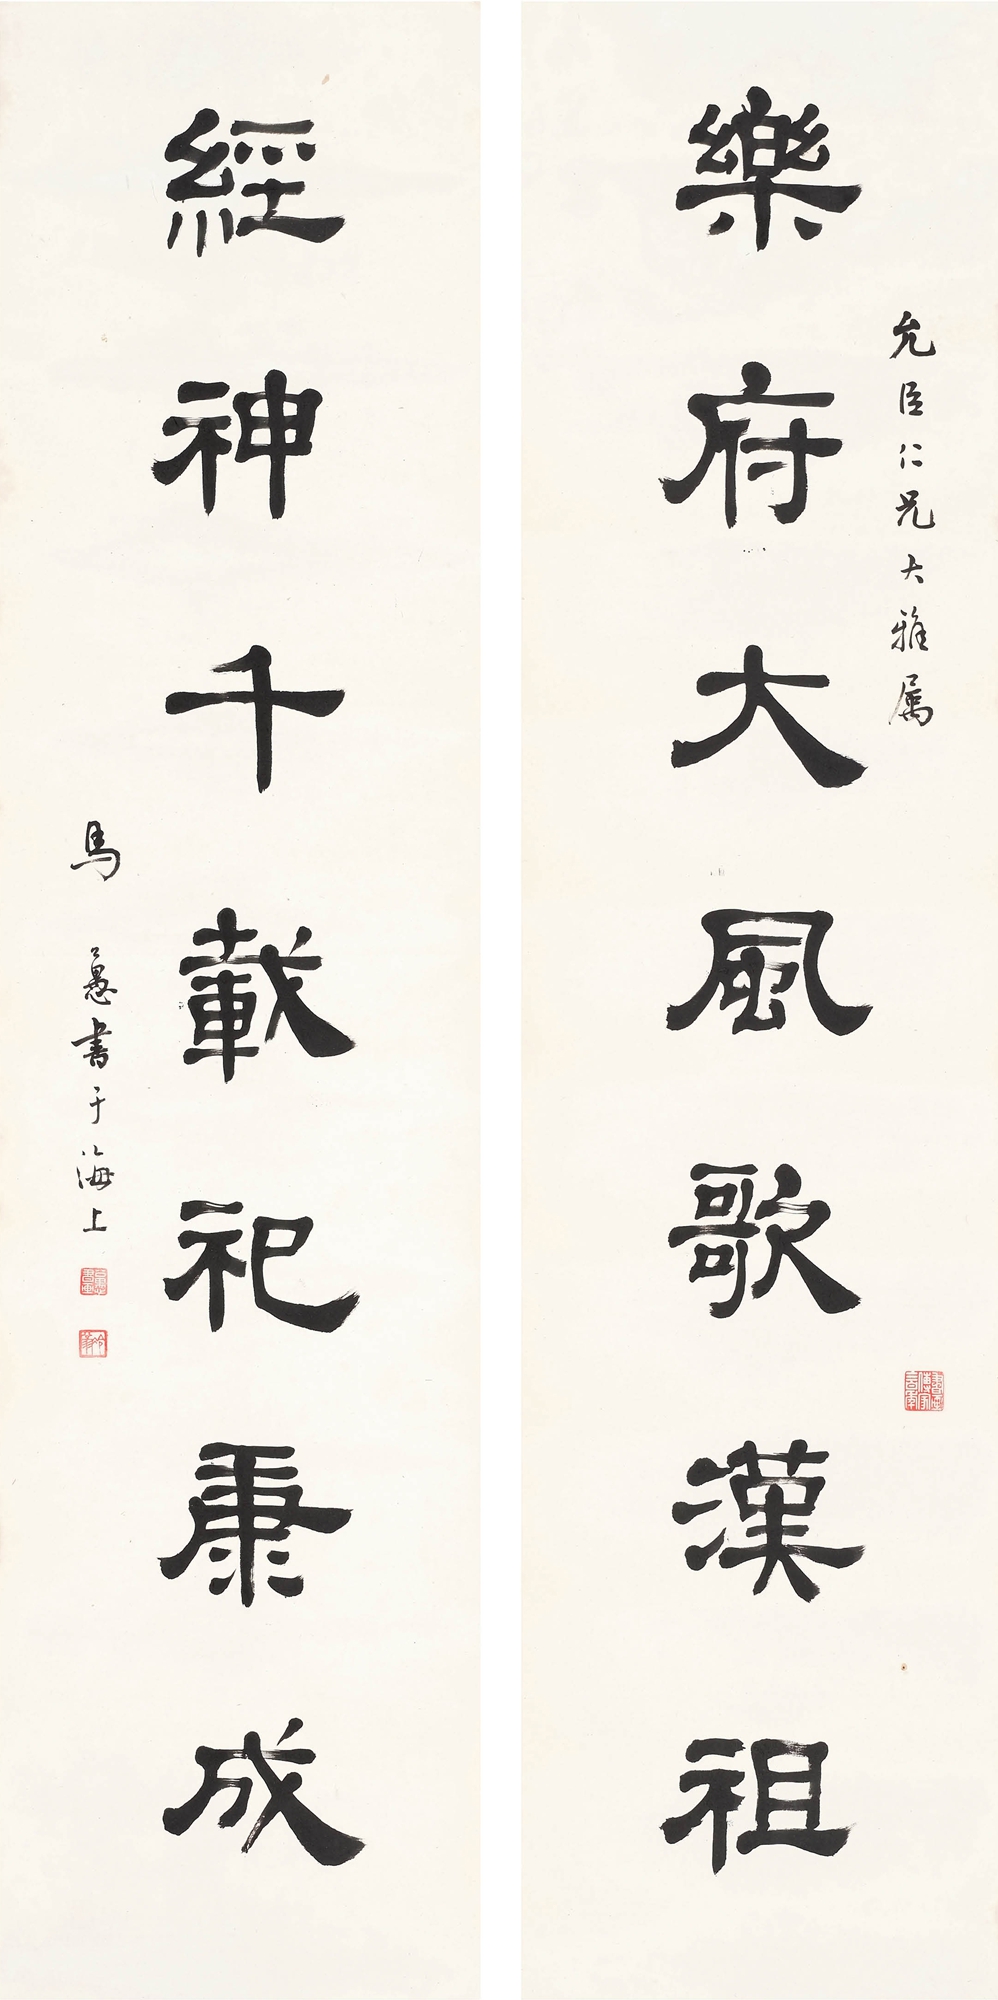 樂府大風歌漢祖
允臣仁兄大雅属
經神千載祀康成
馬愚書于海上